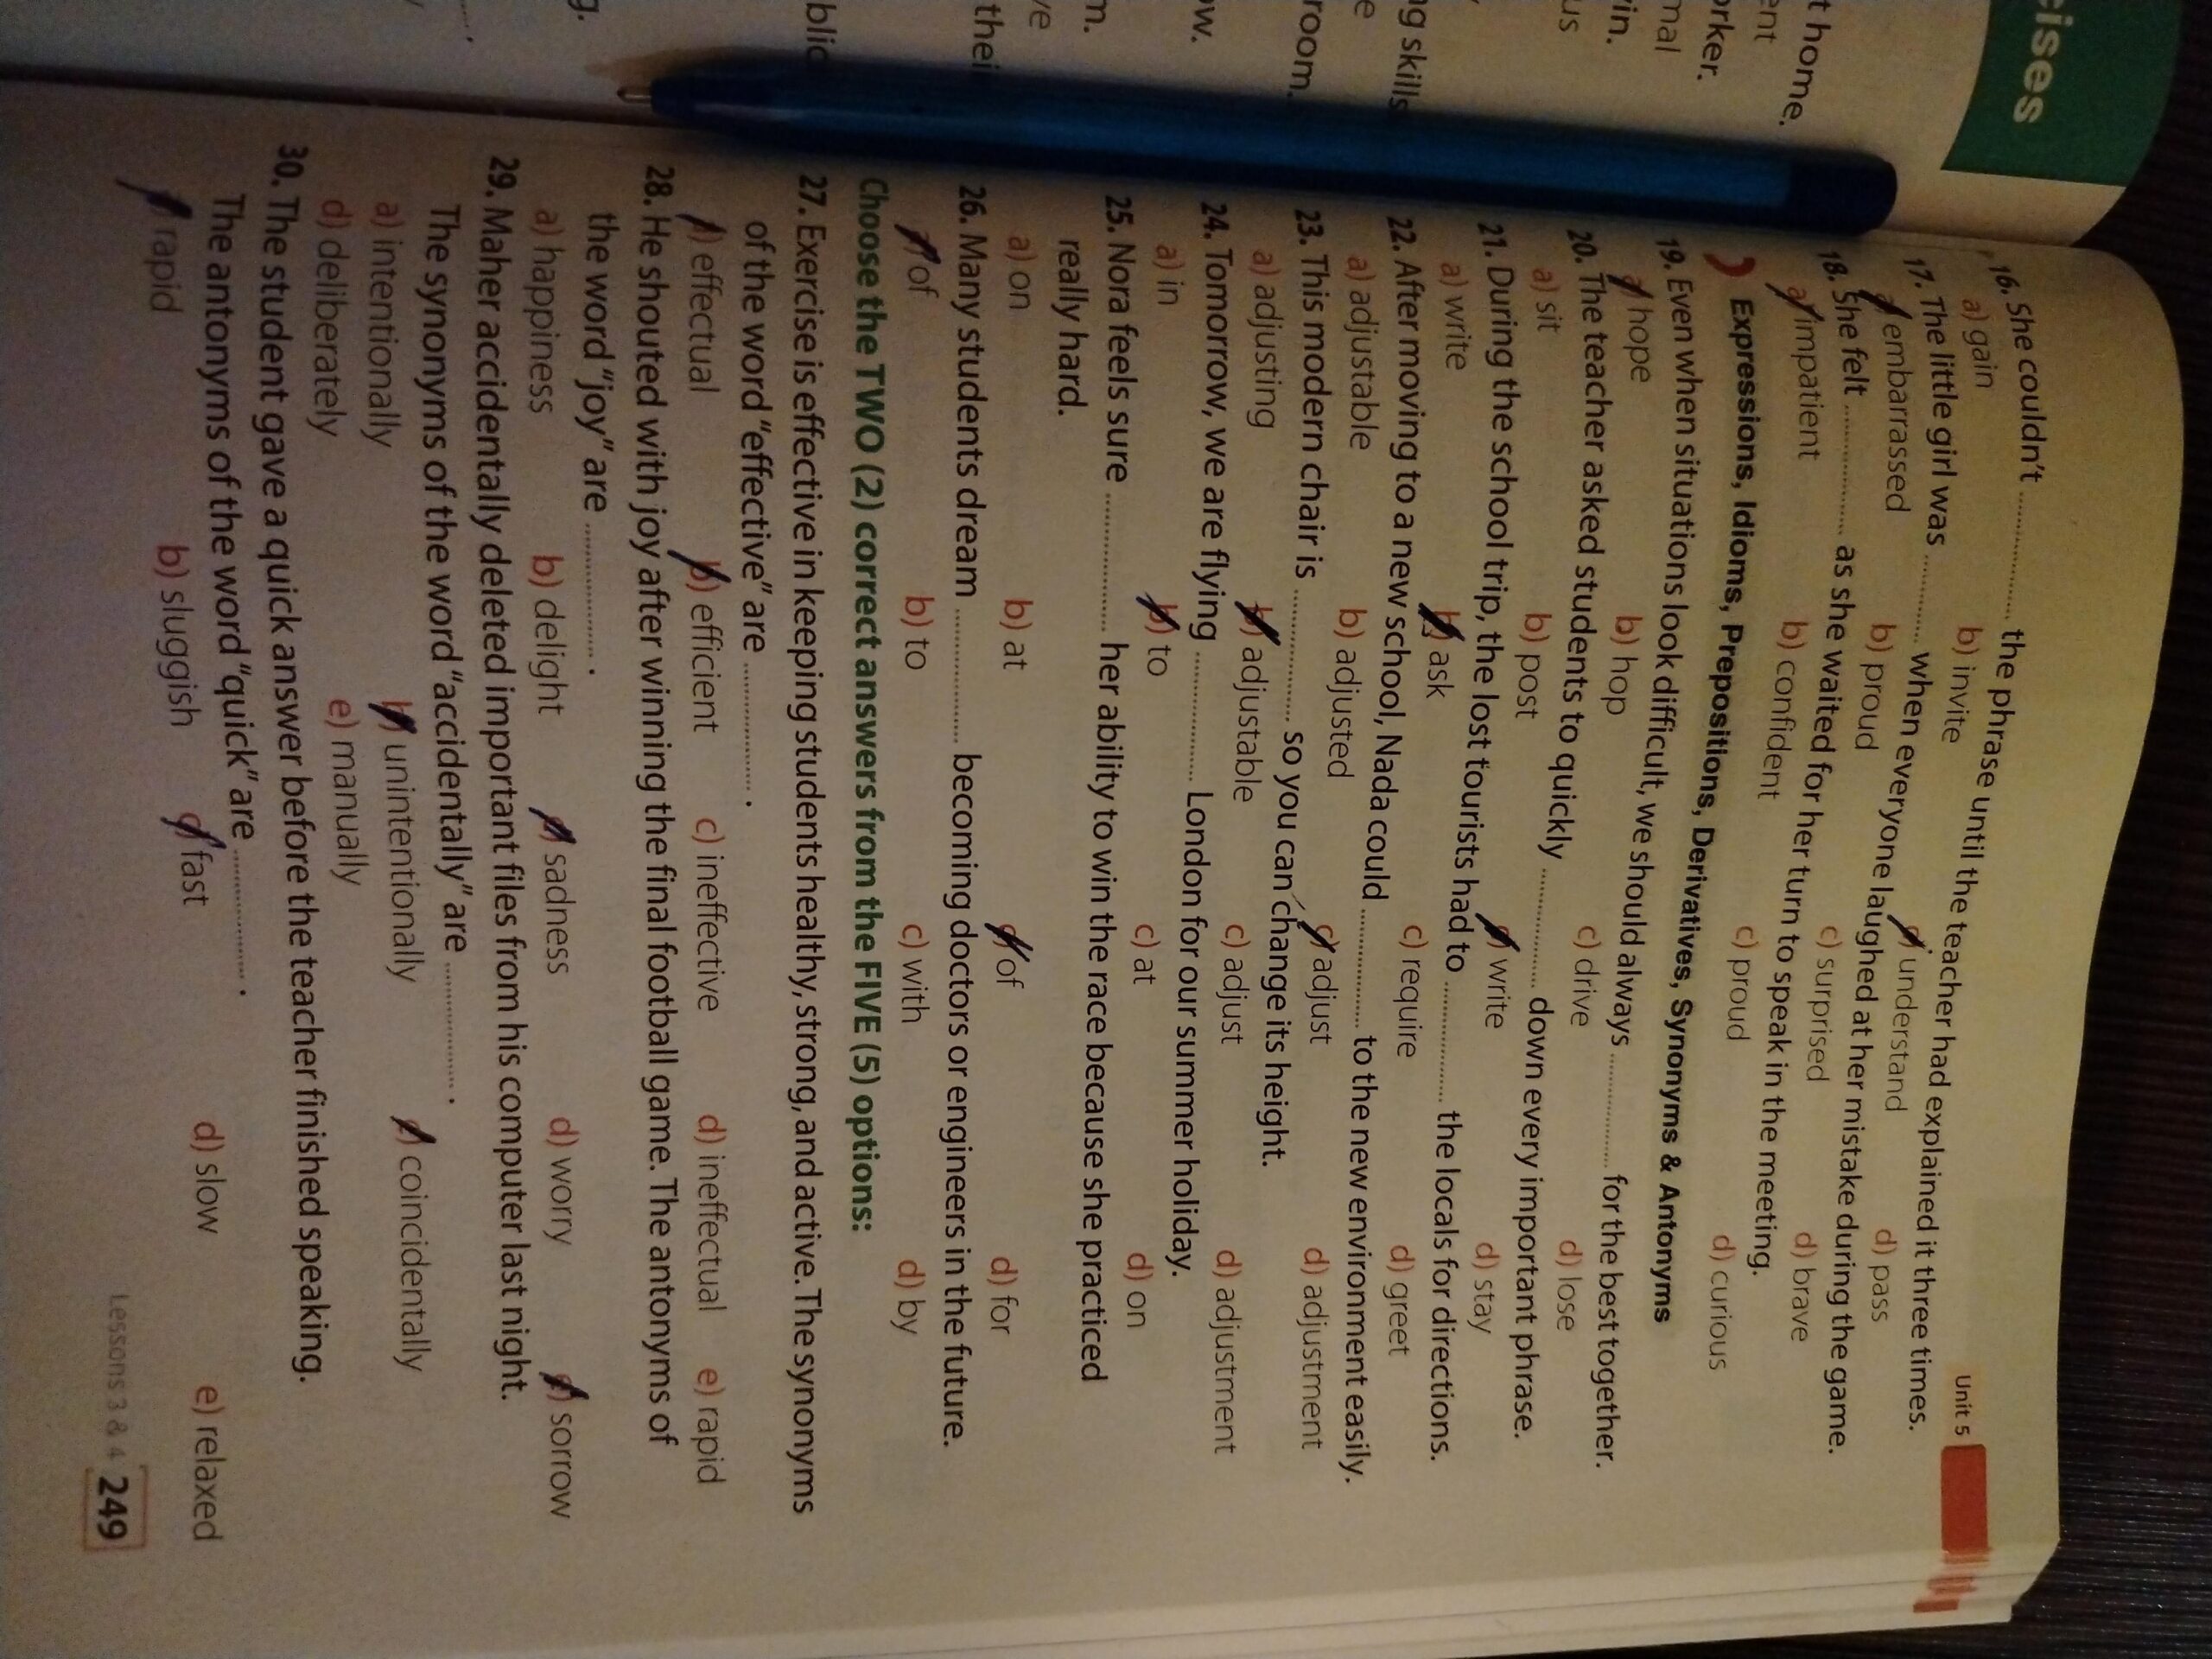 cises
t home.
ent
orker.
mal
in.
us
ng skills
e
room.
ow.
n.
ve
thei
blic
g.
Unit 5
16. She couldn't ............ the phrase until the teacher had explained it three times.
a) gain b) invite c) understand d) pass
17. The little girl was ............ when everyone laughed at her mistake during the game.
a) embarrassed b) proud c) surprised d) brave
18. She felt ............ as she waited for her turn to speak in the meeting.
a) impatient b) confident c) proud d) curious
Expressions, Idioms, Prepositions, Derivatives, Synonyms & Antonyms
19. Even when situations look difficult, we should always ............ for the best together.
a) hope b) hop c) drive d) lose
20. The teacher asked students to quickly ............ down every important phrase.
a) sit b) post c) write d) stay
21. During the school trip, the lost tourists had to ............ the locals for directions.
a) write b) ask c) require d) greet
22. After moving to a new school, Nada could ............ to the new environment easily.
a) adjustable b) adjusted c) adjust d) adjustment
23. This modern chair is ............ so you can change its height.
a) adjusting b) adjustable c) adjust d) adjustment
24. Tomorrow, we are flying ............ London for our summer holiday.
a) in b) to c) at d) on
25. Nora feels sure ............ her ability to win the race because she practiced
really hard.
a) on b) at c) of d) for
26. Many students dream ............ becoming doctors or engineers in the future.
a) of b) to c) with d) by
Choose the TWO (2) correct answers from the FIVE (5) options:
27. Exercise is effective in keeping students healthy, strong, and active. The synonyms
of the word "effective" are ............ .
a) effectual b) efficient c) ineffective d) ineffectual e) rapid
28. He shouted with joy after winning the final football game. The antonyms of
the word "joy" are ............ .
a) happiness b) delight c) sadness d) worry e) sorrow
29. Maher accidentally deleted important files from his computer last night.
The synonyms of the word "accidentally" are ............ .
a) intentionally b) unintentionally c) coincidentally
d) deliberately e) manually
30. The student gave a quick answer before the teacher finished speaking.
The antonyms of the word "quick" are ............ .
a) rapid b) sluggish c) fast d) slow e) relaxed
Lessons 3 & 4 249